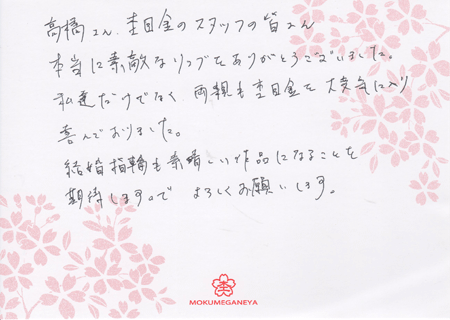 高橋さん、杢目金のスタッフの皆さん
本当に素敵なリングをありがとうございました。
私達だけでなく、両親も杢目金を大変気に入り
喜んでおりました。
結婚指輪も素晴しい作品になることを
期待しますので よろしくお願いします。
MOKUMEGANEYA